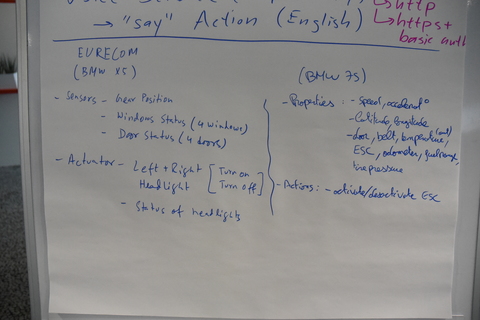 → "say" Action (English)
↳ http
↳ https +
basic auth
EURECOM
(BMW X5)
- Sensors - Gear Position
- Windows Status (4 windows)
- Door Status (4 doors)
- Actuator - Left + Right [Turn on
Headlight Turn off]
- Status of headlights
(BMW 7S)
- Properties: - Speed,
- latitude, longitude
- door, belt, temperature,
ESC, odometer,
tire pressure
- Actions: - activate/desactivate ESC